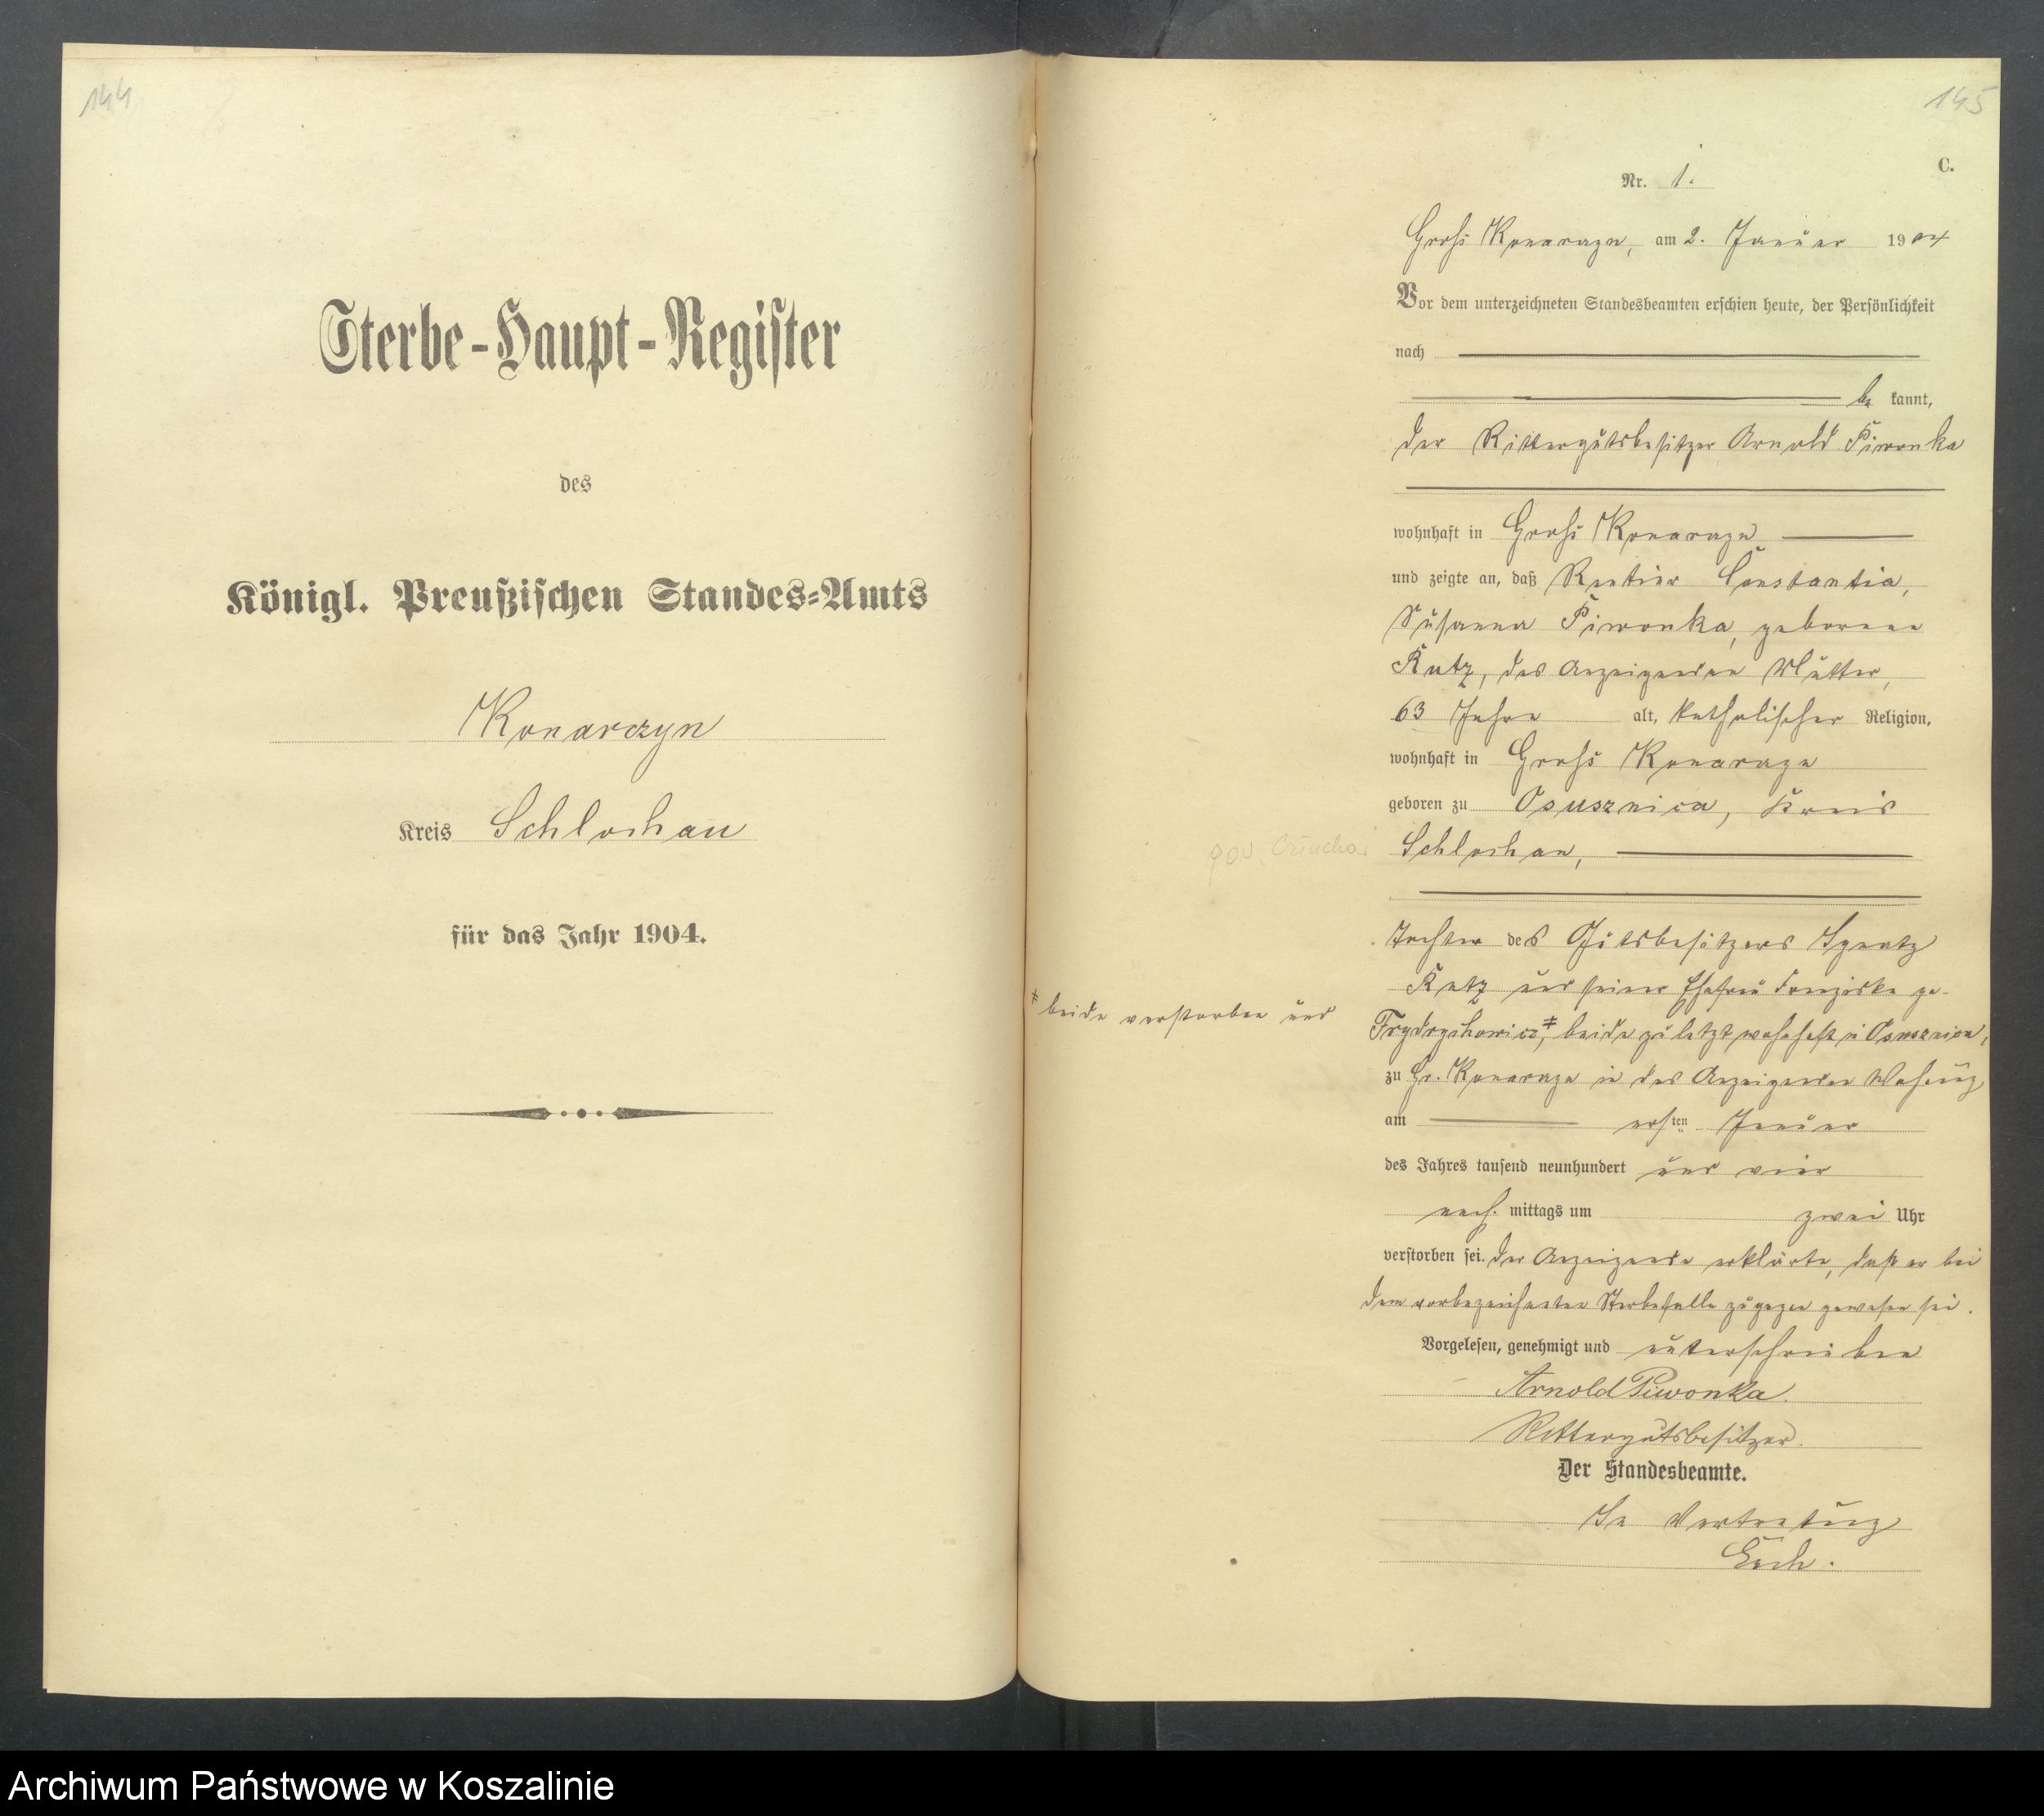 144
Sterbe-Haupt-Register
des
Königl. Preußischen Standes-Amts
Konarczyn
Kreis Schlochau
für das Jahr 1904.
145
C.
Nr. 1.
Groß Konarczyn, am 2. Januar 1904
Vor dem unterzeichneten Standesbeamten erschien heute, der Persönlichkeit
nach
be kannt,
der Rittergutsbesitzer Arnold Piwonka
wohnhaft in Groß Konarczyn
und zeigte an, daß Rentier Constantia,
Susanna Piwonka, geborene
Kutz, des Anzeigenden Mutter,
63 Jahre alt, katholischer Religion,
wohnhaft in Groß Konarczyn
geboren zu Osusznica, Kreis
Schlochau,
Tochter des Gutsbesitzers Ignatz
Kutz und seiner Ehefrau Franziska ge-
‡ beide verstorben und
Frydrychowicz‡, beide zuletzt wohnhaft in Osusznica,
zu Gr. Konarczyn in des Anzeigenden Wohnung
am ersten Januar
des Jahres tausend neunhundert und vier
nach mittags um zwei Uhr
verstorben sei. Der Anzeigende erklärte, daß er bei
dem vorbezeichneten Sterbefalle zugegen gewesen sei.
Vorgelesen, genehmigt und unterschrieben
Arnold Piwonka.
Rittergutsbesitzer.
Der Standesbeamte.
In Vertretung
Archiwum Państwowe w Koszalinie